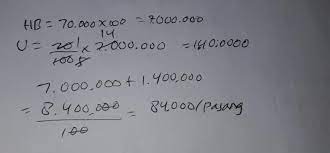 HB = 70.000 x 100 = 7000.000
14
U = 20/100 x 7.000.000 = 1400000
7.000.000 + 1.400,000
= 8.400,000 = 84000/pasang
100